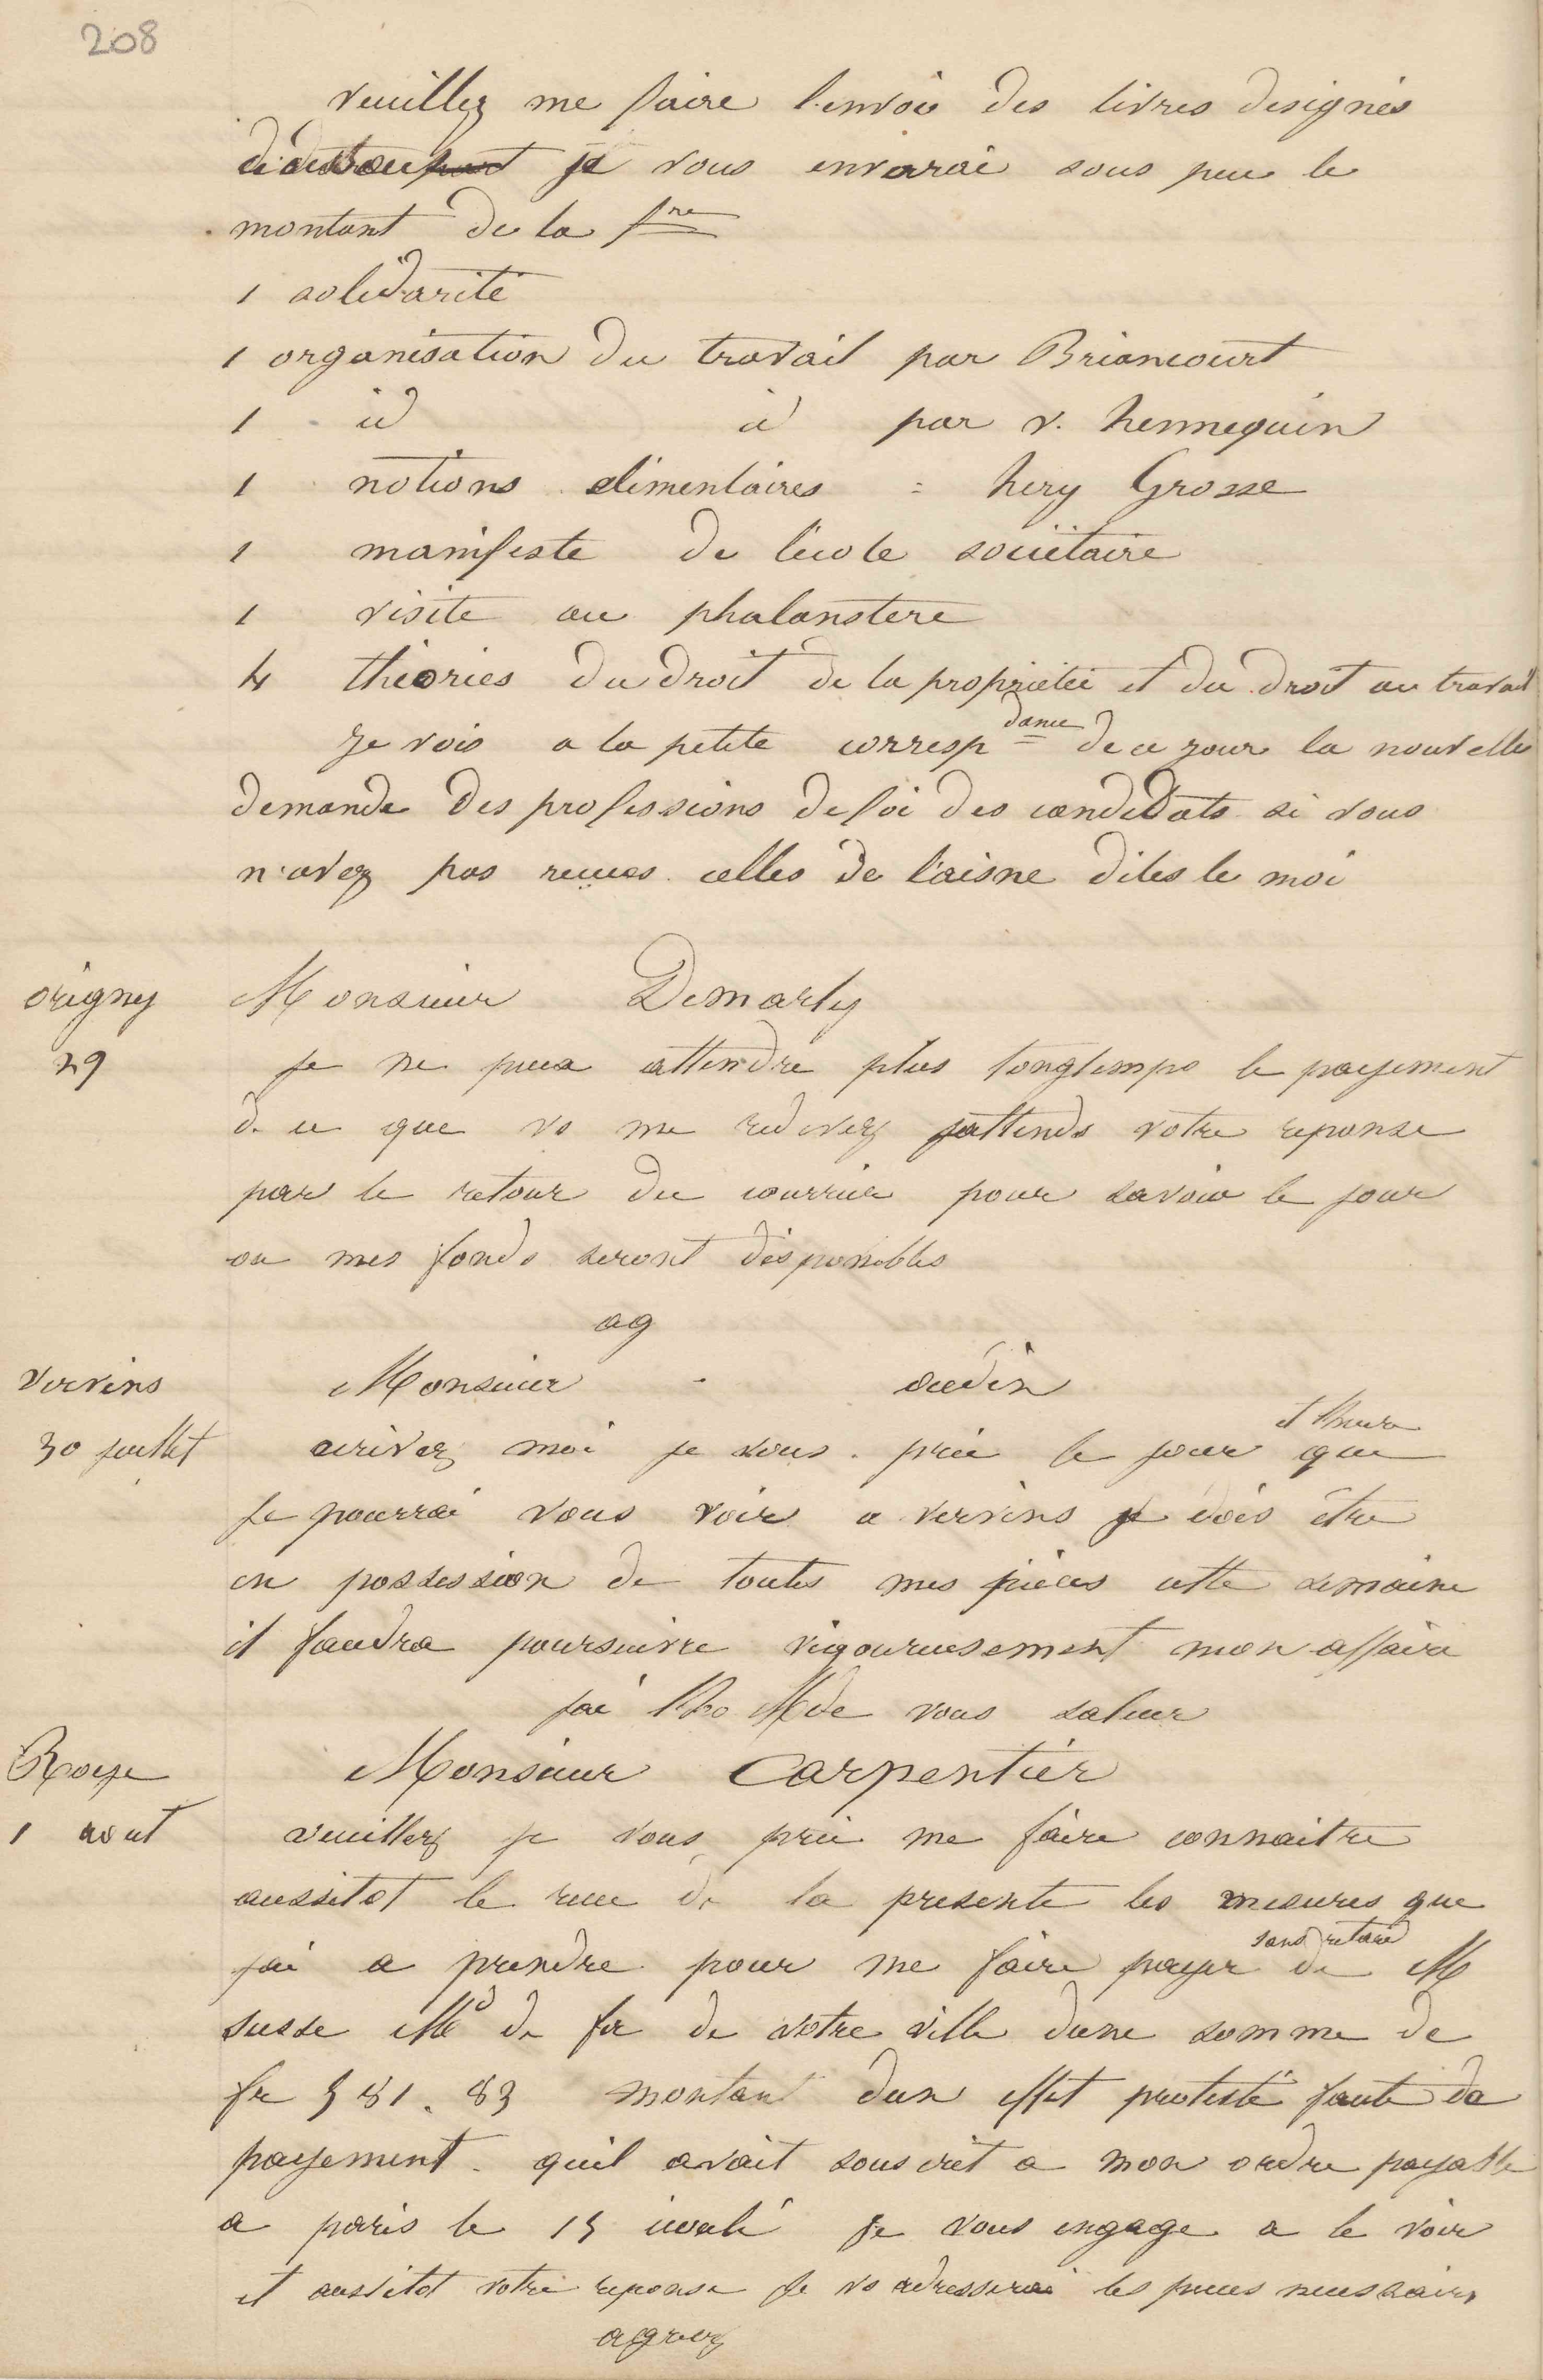 208
veuillez me faire l'envoi des livres designés
je vous enverai sous peu le
montant de la fre
1 solidarité
1 organisation du travail par Briancourt
1 id id par v. hennequin
1 notions elementaires = hery Grosse
1 manifeste de l'école sociétaire
1 visite au phalanstere
4 théories du droit de la propriétée et du droit au travail
Je vois a la petite correspdance de ce jour la nouvelle
demande des professions de foi des candidats si vous
n'avez pas recues celles de l'aisne dites le moi
origny Monsieur Demarly
29 je ne peux attendre plus longtemps le payement
de ce que vs me redevez jattends votre reponse
par le retour du courrier pour savoir le jour
ou mes fonds seront disponibles
ag
Vervins Monsieur oudin
30 juillet ecrivez moi je vous prie le jour et lheure que
je pourrai vous voir a vervins je dois être
en possession de toutes mes pièces cette semaine
il faudra poursuivre vigoureusement mon affaire
jai lho M de vous saluer
Roye Monsieur Carpentier
1 aout veuillez je vous prie me faire connaitre
aussitot le recu de la presente les mesures que
jai a prendre pour me faire payer sans retard de M
susse Md de fer de votre ville dune somme de
fr 581.83 montant dun effet protesté faute de
payement quil avait souscrit a mon ordre payable
a paris le 15 ecoulé je vous engage a le voir
et aussitot votre reponse je vs adresserai les pieces necessaires
agreez